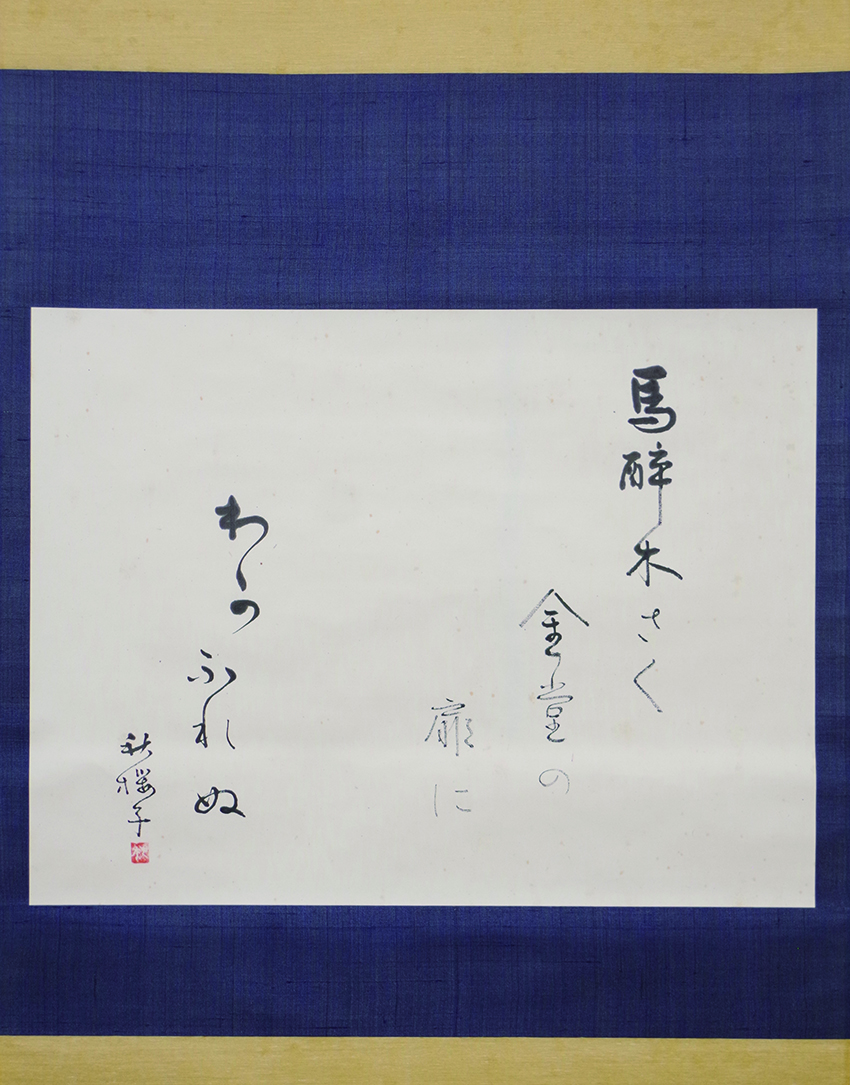 馬醉木さく
金堂の
扉に
わかふれぬ
秋櫻子